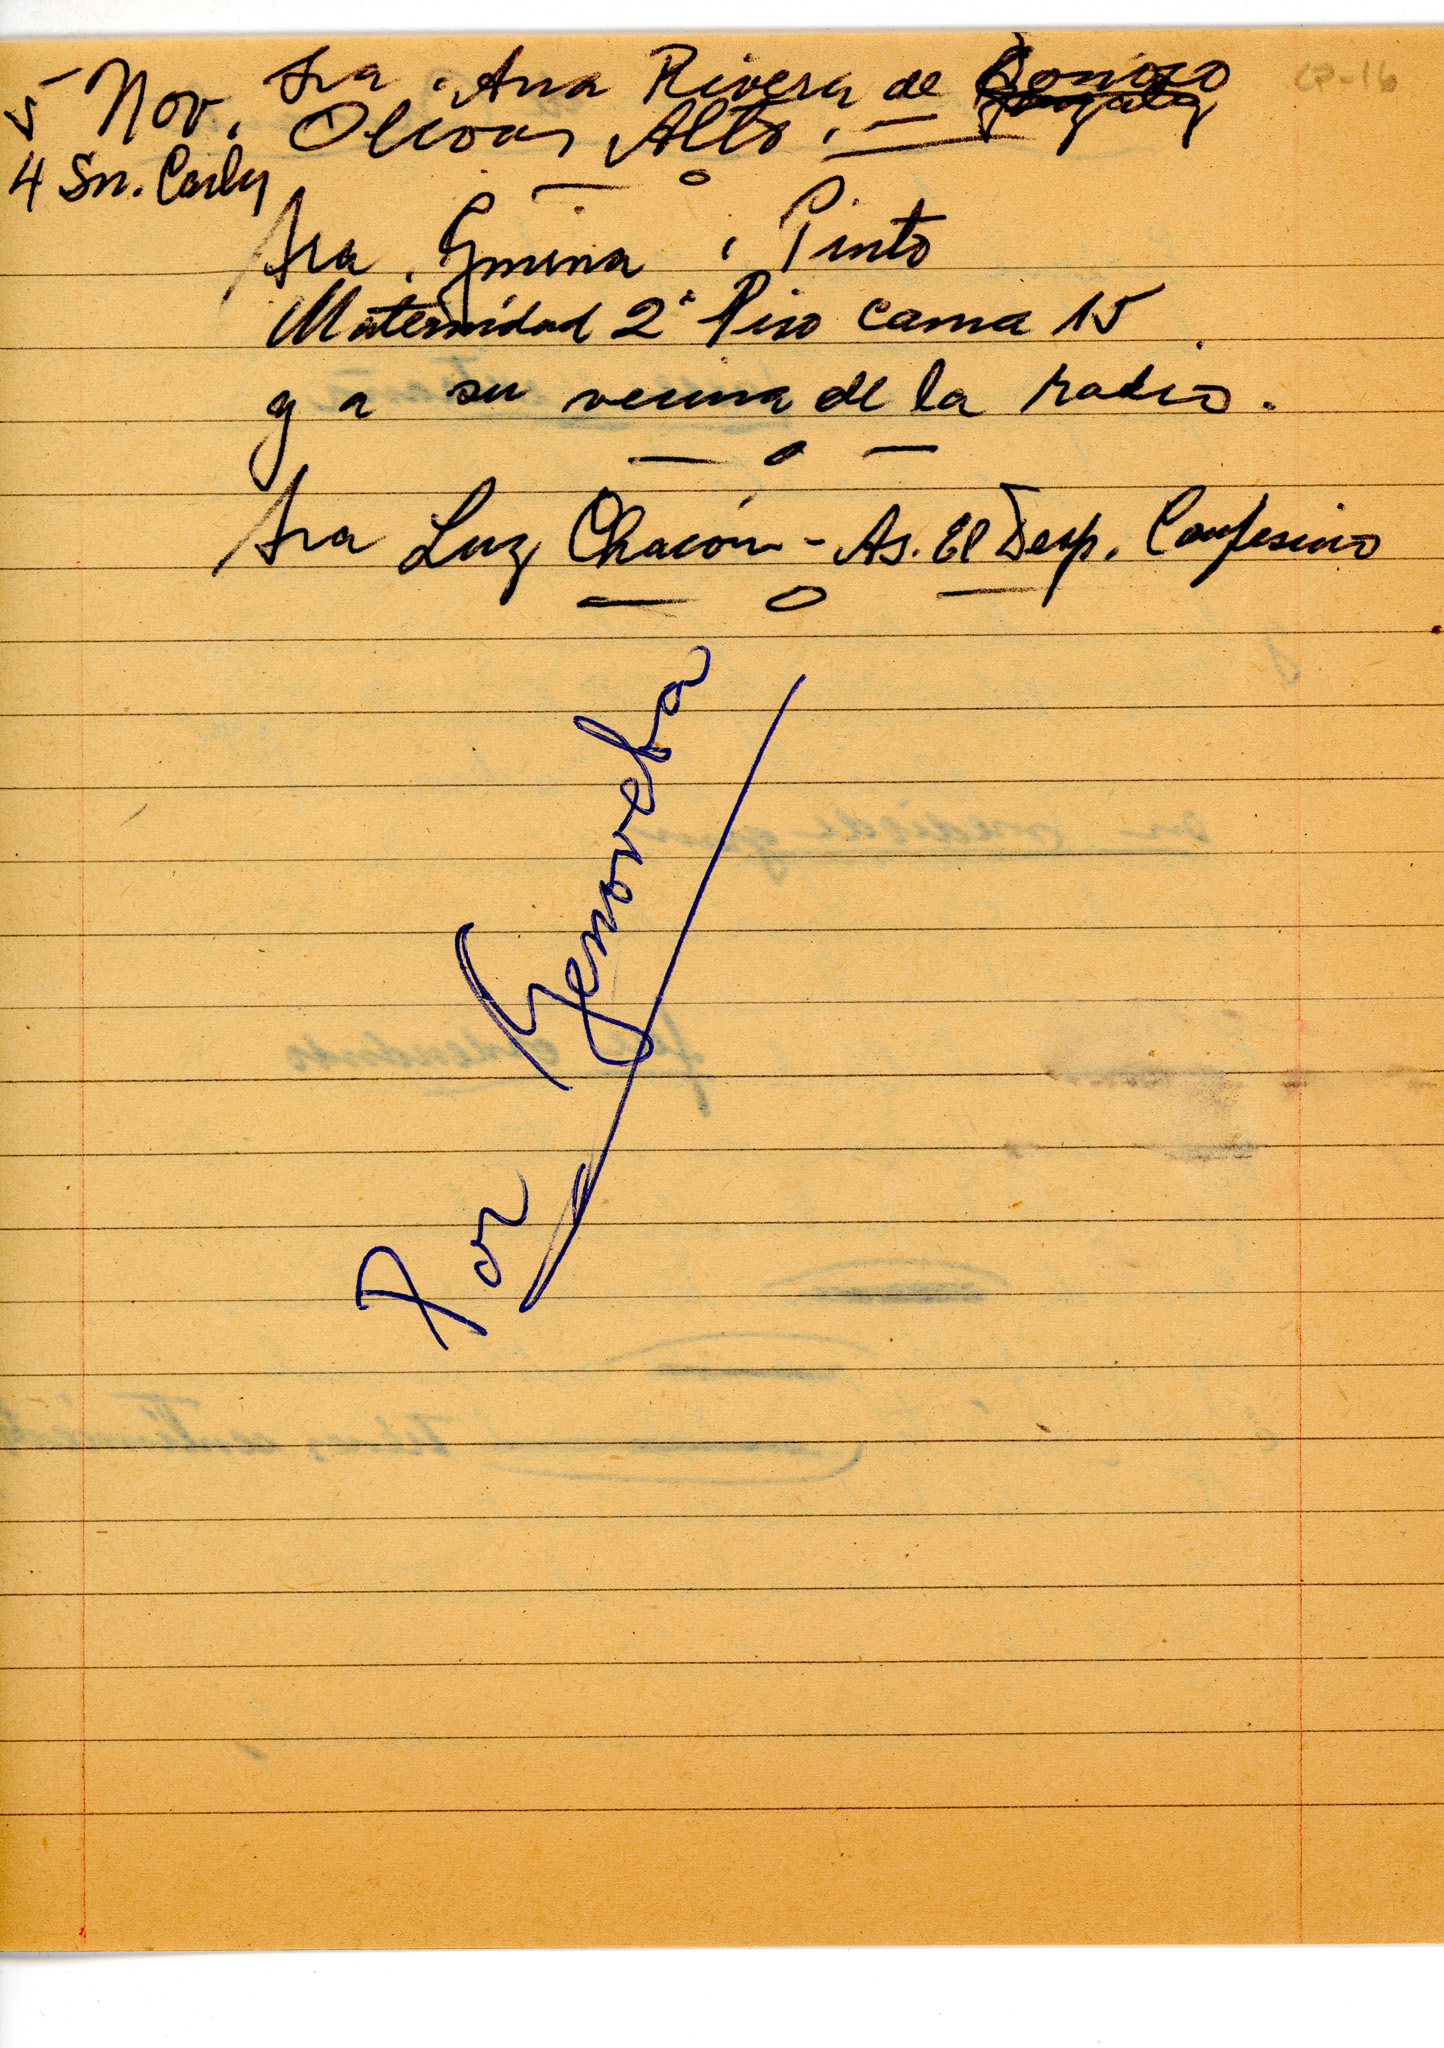 5 Nov. Sra. Ana Rivera de Donoso
Olivar Alto.
4 Sn. Carlos
Sra. Gmina Pinto
Maternidad 2º Piso cama 15
y a su vecina de la radio.
Sra Luz Chacón - As. El Desp. Campesino
Por Yenoveba